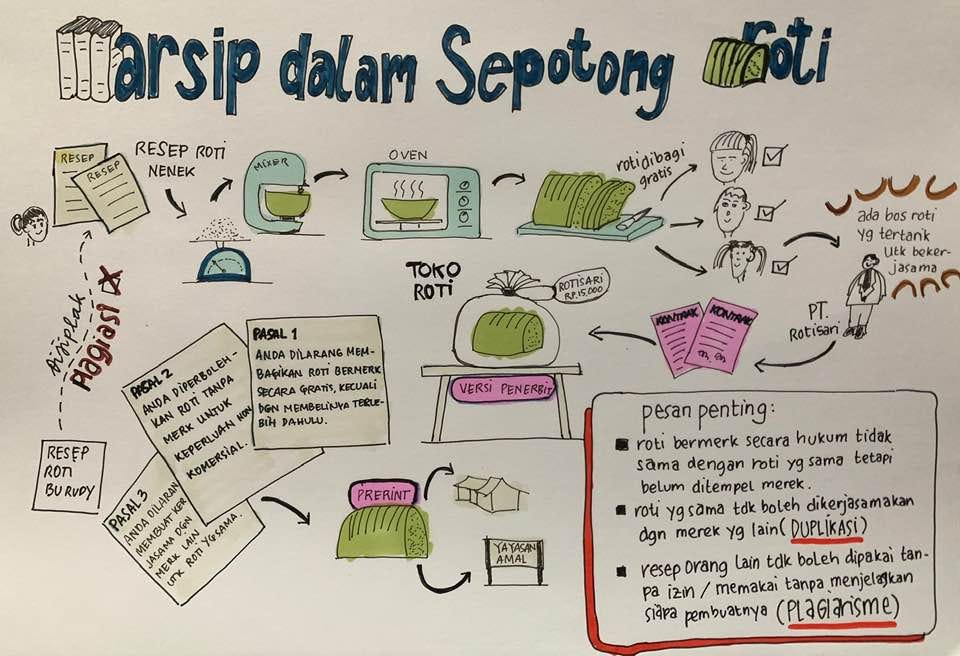 arsip dalam Sepotong roti
RESEP
RESEP
RESEP ROTI
NENEK
MIXER
OVEN
roti dibagi
gratis
ada bos roti
yg tertarik
utk beker-
jasama
PT.
Rotisari
KONTRAK
KONTRAK
TOKO
ROTI
ROTISARI
RP.15.000
VERSI PENERBIT
PASAL 1
ANDA DILARANG MEM-
BAGIKAN ROTI BERMERK
SECARA GRATIS, KECUALI
DGN MEMBELINYA TERLE-
BIH DAHULU.
PASAL 2
ANDA DIPERBOLEH-
KAN ROTI TANPA
MERK UNTUK
KEPERLUAN NON
KOMERSIAL.
PASAL 3
ANDA DILARAN
MEMBUAT KER
JASAMA DGN
MERK LAIN
UTK ROTI YG SAMA.
dijiplak
Plagiasi
RESEP
ROTI
BU RUDY
PRERINT
YAYASAN
AMAL
pesan penting:
roti bermerk secara hukum tidak
sama dengan roti yg sama tetapi
belum ditempel merek.
roti yg sama tdk boleh dikerjasamakan
dgn merek yg lain (DUPLIKASI)
resep orang lain tdk boleh dipakai tan-
pa izin / memakai tanpa menjelaskan
siapa pembuatnya (PLAGIARISME)